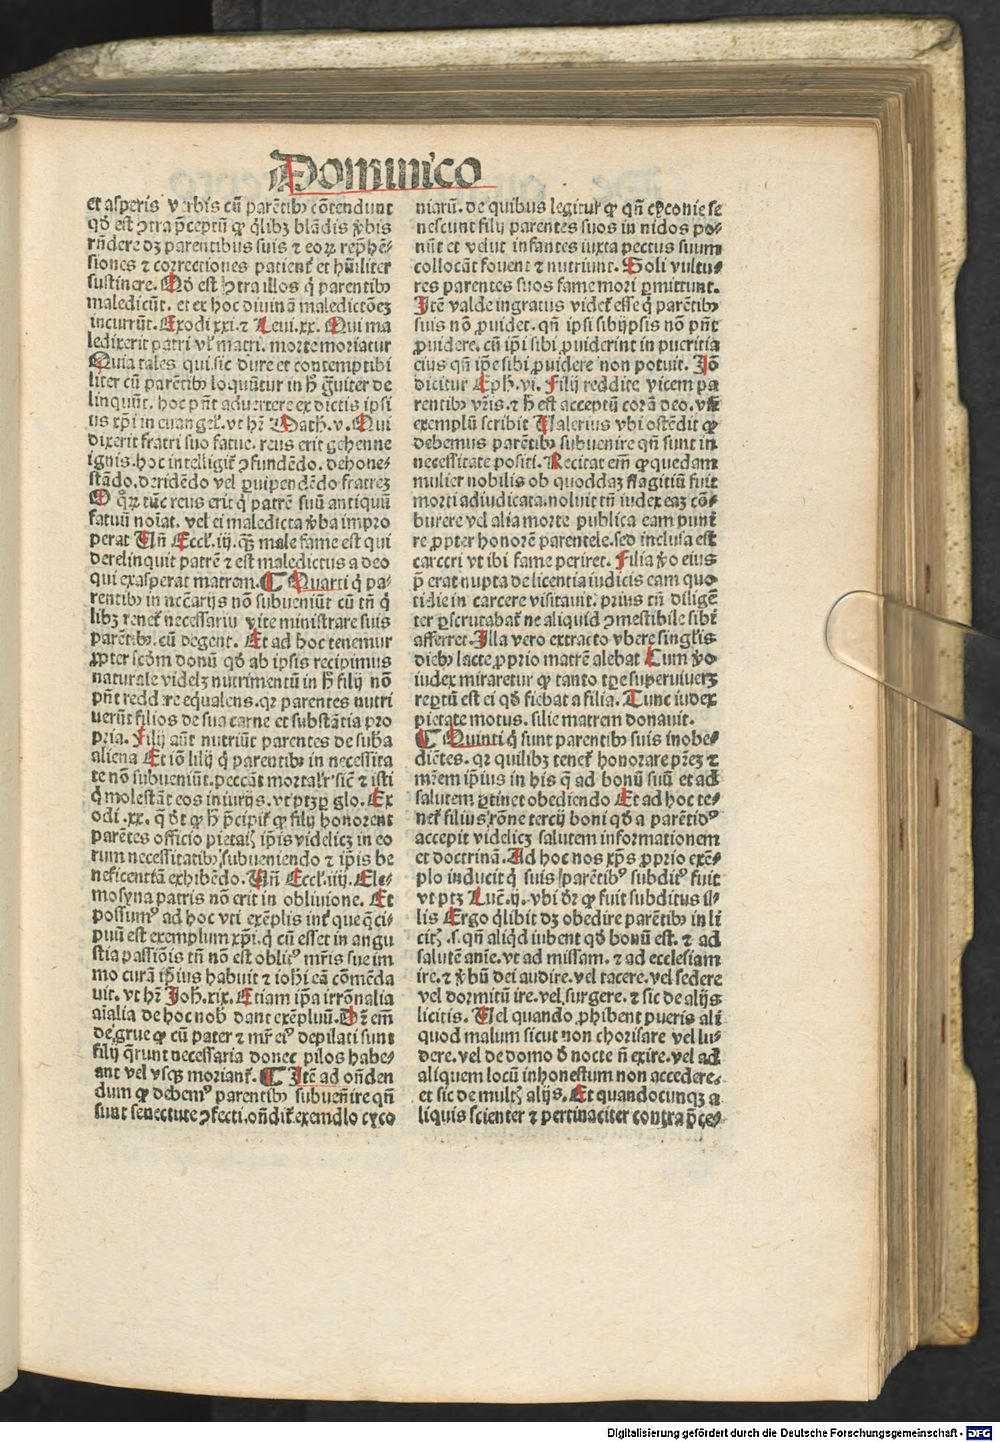 Dominico
et asperis verbis cū parētibꝰ cōtendunt
qd̄ est ꝯtra p̄ceptū ꝙ q̄libꝫ blādis ꝟbis
rn̄dere dꝫ parentibus suis ⁊ eoꝝ rep̄hē-
siones ⁊ correctiones patient̄ et hūiliter
sustinere. Qd̄ est ꝯtra illos q̄ parentibꝰ
maledicūt. et ex hoc diuinā maledictōeꝫ
incurrūt. Exodi xxi. ⁊ Leui. xx. Qui ma
ledixerit patri vl̓ matri. morte moriatur
Quia tales qui sic dure et contemptibi
liter cū parētibꝰ loquūtur in h̄ ḡuiter de
linquūt. hoc pn̄t aduertere ex dictis ipsi
us xp̄i in euangel̓. vt hr̄ Math̓. v. Qui
dixerit fratri suo fatue. reus erit gehenne
ignis. hoc intelligit̄ ꝯfundēdo. dehone-
stādo. deridēdo vel ꝟuipendēdo fratreꝫ
O q̊ꝝ tūc reus erit q̄ patrē suū antiquū
fatuū noīat. vel ei maledicta ꝟba impro
perat Un̄ Eccl̓. iij. qꝫ male fame est qui
derelinquit patrē ⁊ est maledictus a deo
qui exasperat matrem. ¶ Quarti q̄ pa-
rentibꝰ in nec̄arijs nō subueniūt cū tn̄ q̄
libꝫ tenet̄ necessariū vite ministrare suis
parētibꝰ. cū degent. Et ad hoc tenemur
ꝓpter scd̄m donū qd̄ ab ipsis recipimus
naturale videlꝫ nutrimentū in h̄ filij nō
pn̄t reddere equalens. qꝛ parentes nutri
uerūt filios de sua carne et substātia pro
pria. Filij aūt nutriūt parentes de suba
aliena Et iō filij q̄ parentibꝰ in necessita
te nō subueniūt. peccāt mortalr̓ sic̄ ⁊ isti
q̄ molestāt eos iniurijs. vt ptꝫ ꝑ glo. Ex
odi. xx. q̄ dt̄ ꝙ h̄ p̄cipit̄ ꝙ filij honorent
parētes officio pietatꝭ ip̄is videlicꝫ in eo
rum necessitatibꝰ subueniendo ⁊ ip̄is be
neficentiā exhibēdo. Un̄ Eccl̓. iiij. Ele-
mosyna patris nō erit in obliuione. Et
possumꝰ ad hoc vti exēplis int̄ que q̄ ci-
puū est exemplum xp̄i. q̄ cū esset in angu
stia passiōis tn̄ nō est oblitꝰ mr̄is sue im
mo curā ip̄ius habuit ⁊ ioh̓i eā cōmēda
uit. vt hr̄ Joh̓. xix. Etiam ip̄a irrōnalia
aīalia de hoc nob̓ dant exēpluū. Dr̄ em̄
de grue ꝙ cū pater ⁊ mr̄ eiꝰ depilati sunt
filij q̄runt necessaria donec pilos habe-
ant vel vsqꝫ moriant̄. ¶ Itē ad on̄den
dum ꝙ debemꝰ parentibꝰ subuenire qn̄
sunt senectute ꝯfecti. on̄dit̄ exemplo cyco
niarū. de quibus legitur ꝙ qn̄ cyconie se
nescunt filij parentes suos in nidos po-
nūt et velut infantes iuxta pectus suum
collocāt fouent ⁊ nutriunt. Soli vultu-
res parentes suos fame mori ꝑmittunt.
Itē valde ingratus videt̄ esse q̄ parētibꝰ
suis nō ꝓuidet. qn̄ ipsi sibijpsis nō pn̄t
ꝓuidere. cū ip̄i sibi ꝓuiderint in pueritia
eius qn̄ ip̄e sibi ꝓuidere non potuit. Iō
dicitur Eph̓. vi. Filij reddite vicem pa
rentibꝰ vr̄is. ⁊ h̄ est acceptū corā deo. vn̄
exemplū scribit Valerius vbi ostēdit ꝙ
debemus parētibꝰ subuenire qn̄ sunt in
necessitate positi. Recitat em̄ ꝙ quedam
mulier nobilis ob quoddaꝫ flagitiū fuit
morti adiudicata. noluit tn̄ iudex eaꝫ cō-
burere vel alia morte publica eam puni
re ꝓpter honorē parentele. sed inclusa est
carceri vt ibi fame periret. Filia ꝟo eius
p̄ erat nupta de licentia iudicis eam quo
tidie in carcere visitauit. prius tn̄ diligē
ter ꝑscrutabat̄ ne aliquid ꝯmestibile sibi
afferret. Illa vero extracto vbere singl̓is
diebꝰ lacte ꝓprio matrē alebat Cum ꝟo
iudex miraretur ꝙ tanto tꝑe superuiueret
reꝑtū est ei qd̄ fiebat a filia. Tunc iudex
pietate motus. filie matrem donauit.
¶ Quinti q̄ sunt parentibꝰ suis inobe-
diētes. qꝛ quilibꝫ tenet̄ honorare pr̄eꝫ ⁊
mr̄em ip̄ius in his q̄ ad bonū suū et ad
salutem ꝑtinet obediendo Et ad hoc te-
net̄ filius rōne tercij boni qd̄ a parētibꝰ
accepit videlicꝫ salutem informationem
et doctrinā. Ad hoc nos xp̄s ꝓprio exē-
plo inducit q̄ suis parētibꝰ subditꝰ fuit
vt ptꝫ Luc̄. ij. vbi dr̄ ꝙ fuit subditus il-
lis Ergo q̄libit dꝫ obedire parētibꝰ in li
citꝭ .s. qn̄ aliqd̄ iubent qd̄ bonū est. ⁊ ad
salutē anīe. vt ad missam. ⁊ ad ecclesiam
ire. ⁊ ꝟbū dei audire. vel tacere. vel sedere
vel dormitū ire. vel surgere. ⁊ sic de alijs
licitis. Vel quando ꝓhibent pueris ali
quod malum sicut non chorisare vel lu-
dere. vel de domo d̄ nocte n̄ exire. vel ad
aliquem locū inhonestum non accedere.
et sic de multꝭ alijs. Et quandocunqꝫ a
liquis scienter ⁊ pertinaciter contra p̄ce-
Digitalisierung gefördert durch die Deutsche Forschungsgemeinschaft - DFG